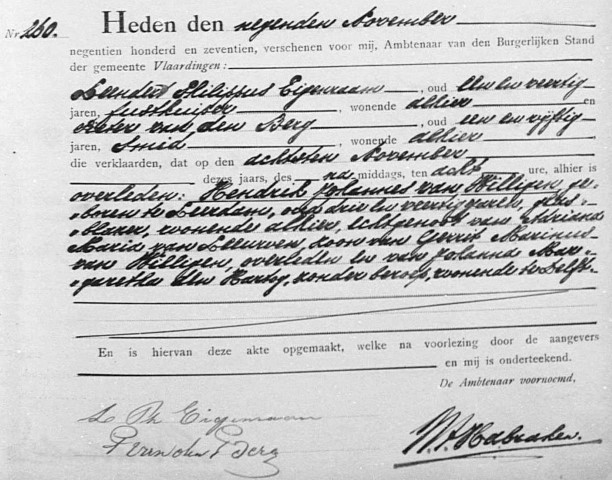 Nr 260. Heden den negenden November
negentien honderd en zeventien, verschenen voor mij, Ambtenaar van den Burgerlijken Stand
der gemeente Vlaardingen:
Leendert Philippus Eigenraam, oud een en veertig
jaren, fusthuiser, wonende alhier en
Pieter van den Berg, oud een en vijftig
jaren, Smid, wonende alhier
die verklaarden, dat op den achtsten November
dezes jaars, des na middags, ten acht ure, alhier is
overleden: Hendrik Johannes van Willigen, ge-
boren te Leerdam, oud drie en veertig jaren, glas-
blazer, wonende alhier, echtgenoot van Adriana
Maria van Leeuwen, zoon van Gerrit Marinus
van Willigen, overleden en van Johanna Mar-
garetha den Hartog, zonder beroep, wonende te Delft.
En is hiervan deze akte opgemaakt, welke na voorlezing door de aangevers
en mij is onderteekend.
De Ambtenaar voornoemd,
L Ph Eigenraam
P van den Berg